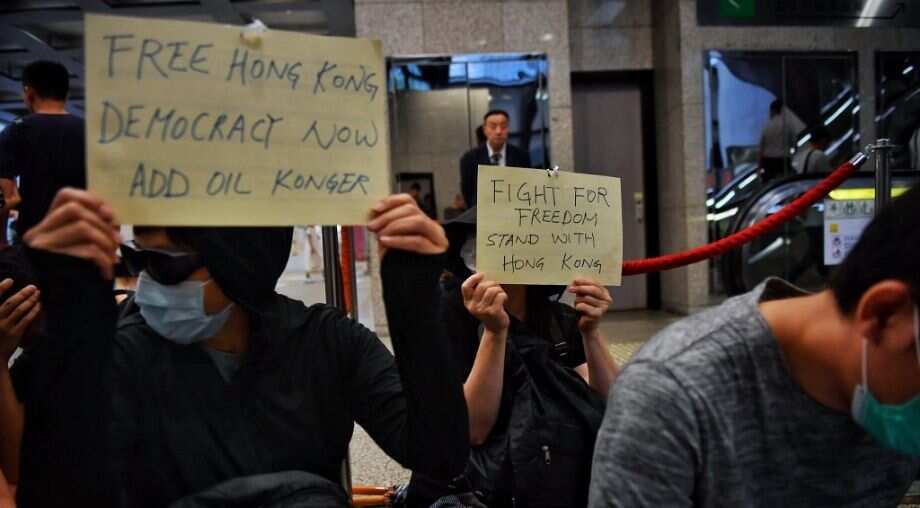 FREE HONG KONG
DEMOCRACY NOW
ADD OIL KONGER
FIGHT FOR
FREEDOM
STAND WITH
HONG KONG